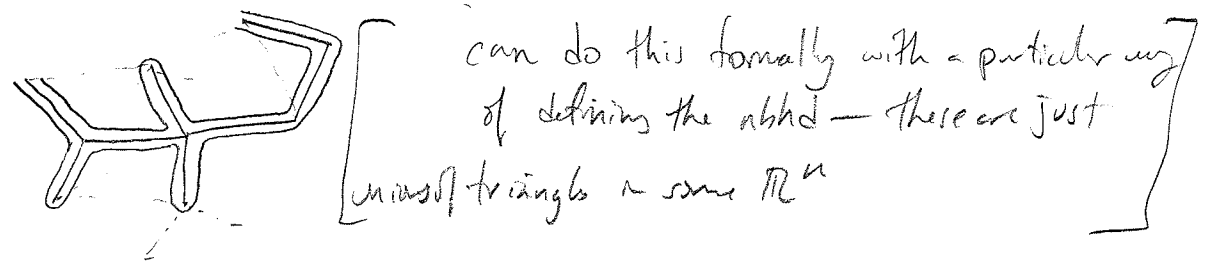 [can do this formally with a particular way
of defining the nbhd — these are just
unions of triangles in some ℝⁿ]